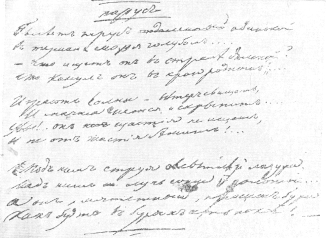 парусъ
Бѣлѣетъ парусъ одинокой
въ туманѣ моря голубомъ...
– что ищетъ онъ въ странѣ далекой?
что кинулъ онъ въ краю родномъ?...
Играютъ волны – вѣтеръ свищетъ,
И мачта гнется и скрыпитъ...
Увы!.. онъ счастія не ищетъ,
и не отъ счастія бѣжитъ!...
Подъ нимъ струя свѣтлѣй лазури,
надъ нимъ лучъ солнца золотой
а онъ, мятежный, проситъ бури
какъ будто въ буряхъ есть покой!